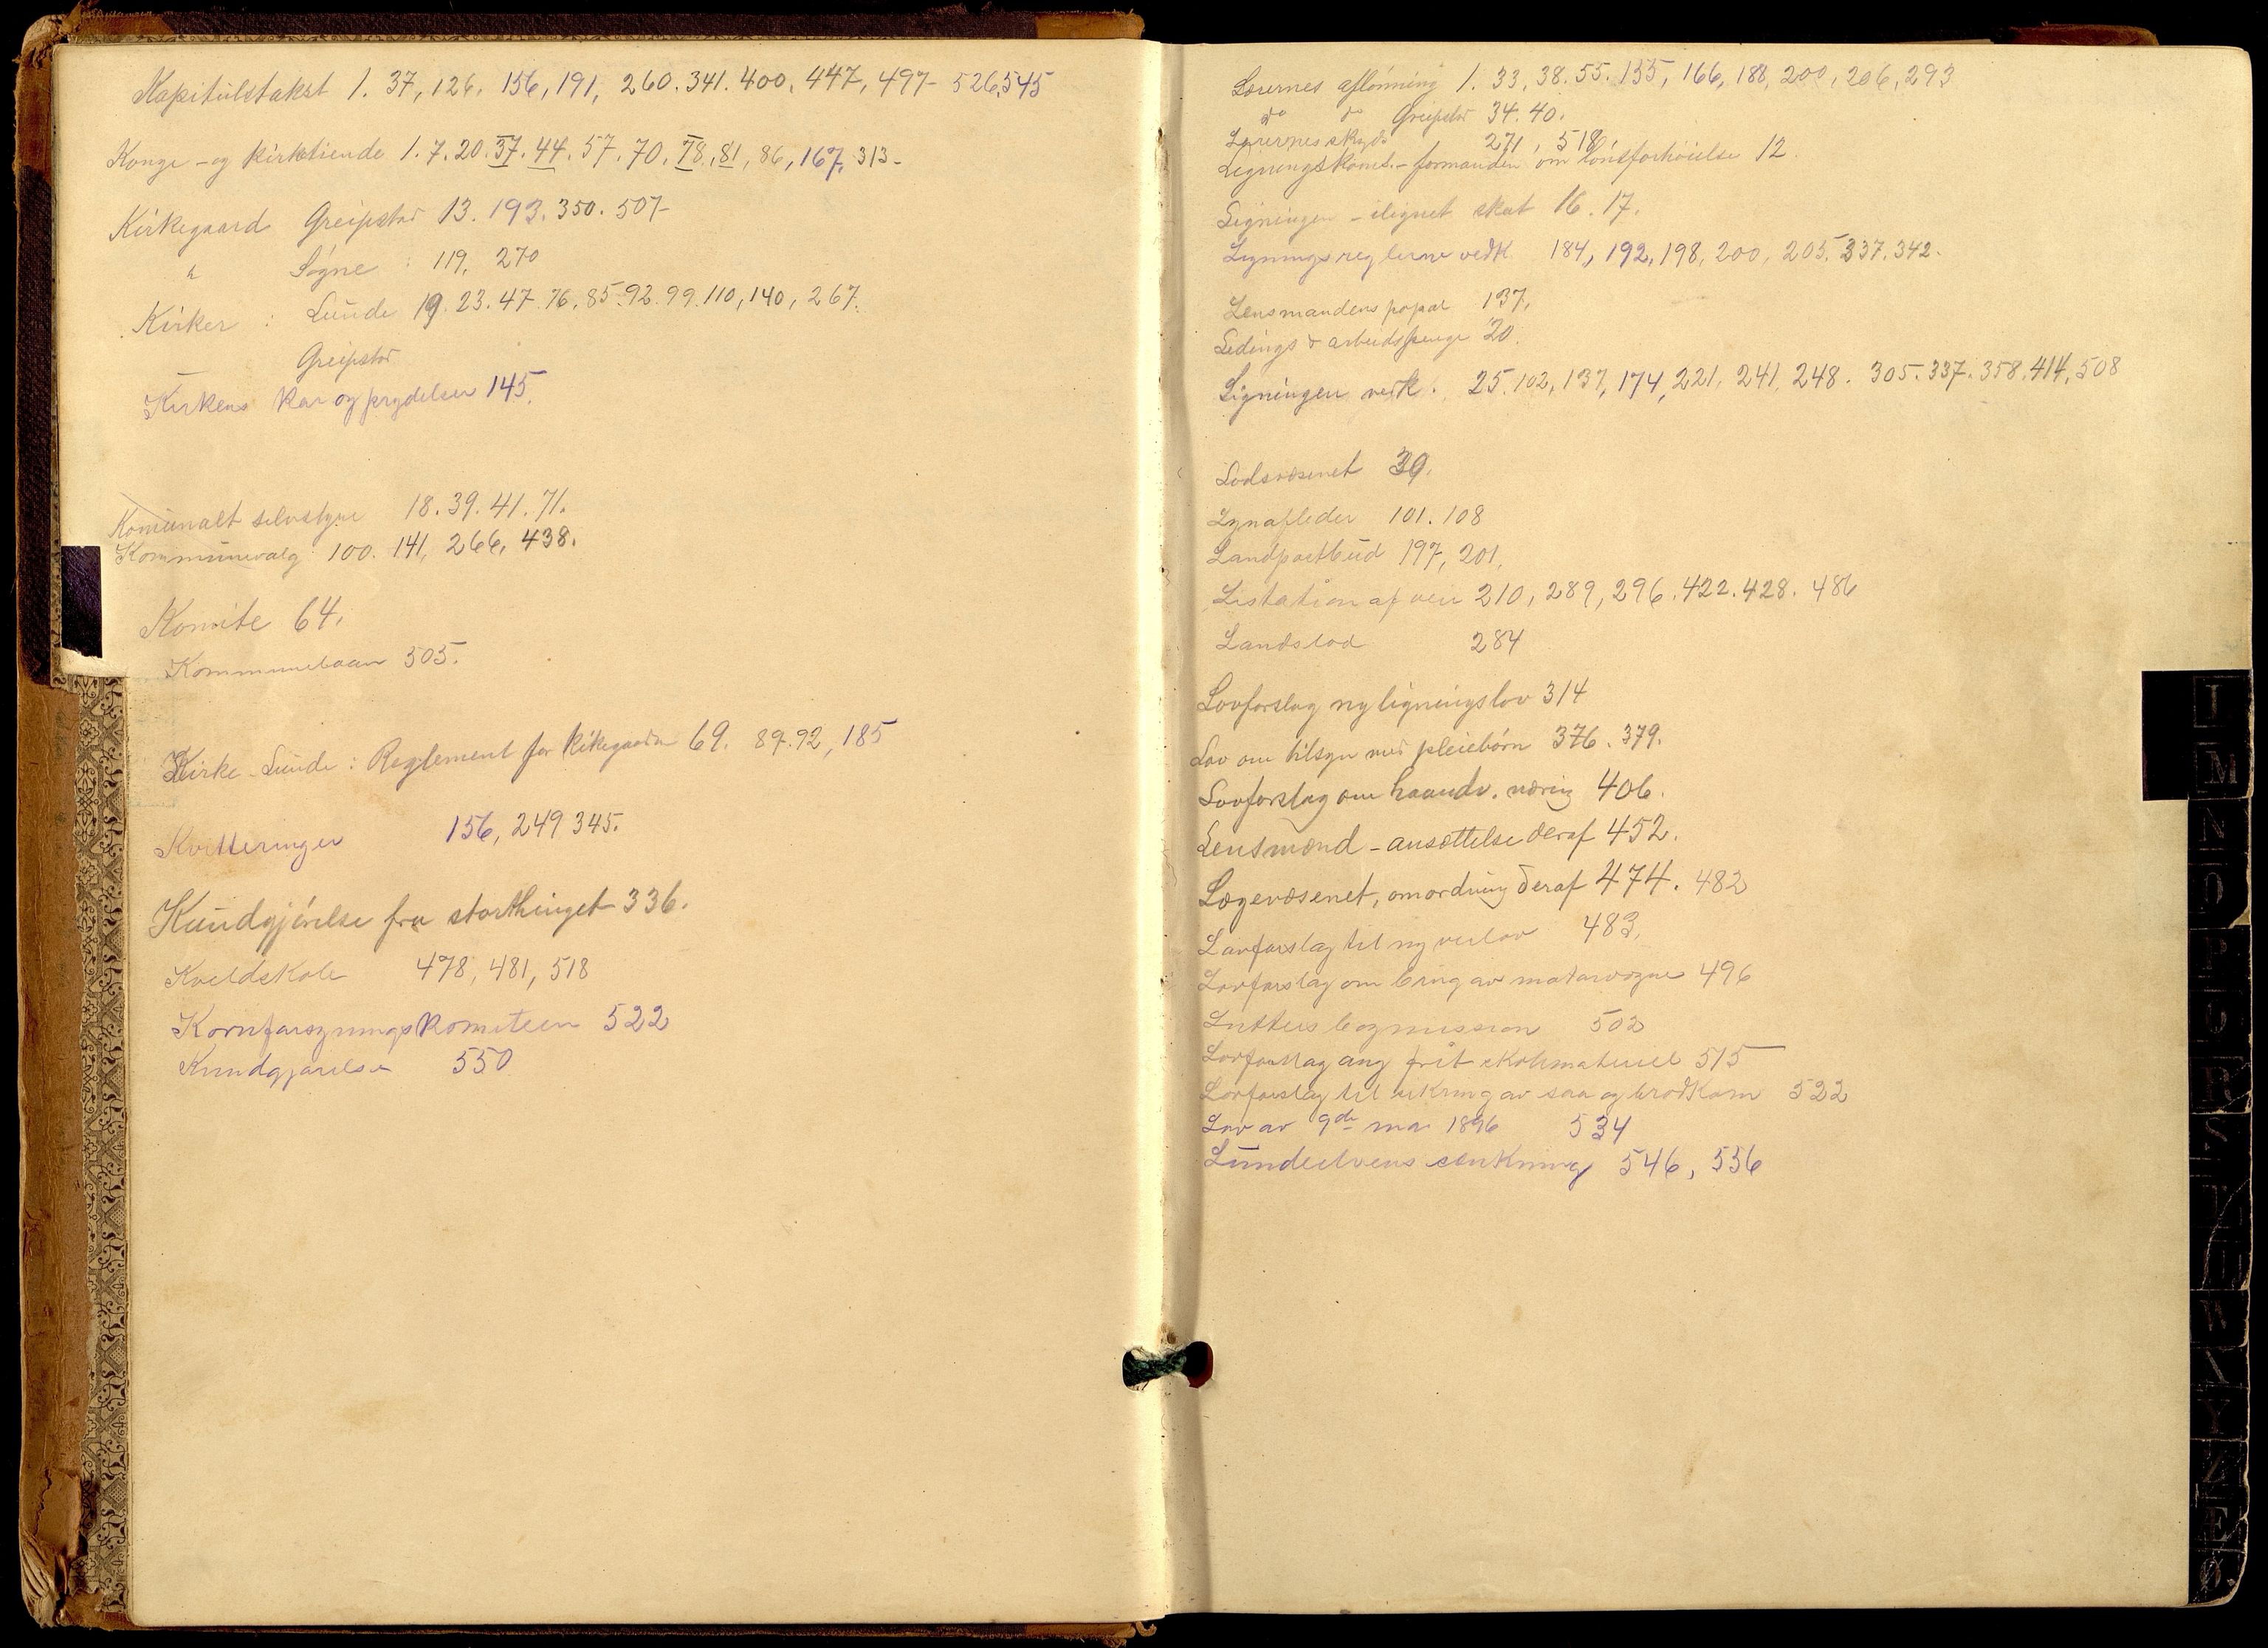 Kapitulstakst 1. 37, 126. 156, 191, 260. 341. 400. 447, 497- 526, 545
Konge- og kirketiende 1. 7. 20. 37. 44. 57. 70. 78. 81, 86, 167, 313-
Kirkegaard Greipstad 13. 193. 350. 507-
" Søgne : 119, 270
Kirker : Lunde 19. 23. 47. 76. 85. 92. 99. 110, 140, 267.
Greipstad
Kirkens kar og prydelser 145.
Komunalt selvstyre 18. 39. 41. 71.
Kommunevalg: 100. 141, 266, 438.
Komite 64.
Kommunelaan 305.
Kirke- Lunde: Reglement for kikegaarden 69. 89. 92, 185
Kvitteringer 156, 249 345.
Kundgjørelse fra storthinget 336.
Kveldskole 478, 481, 518
Kornforsyningskomiteen 522
Kundgjørelse 550
Lærernes aflønning 1. 33, 38. 55. 155, 166, 188, 200, 206, 293
do do Greipstad 34. 40.
Lærernes skyds 271, 518
Ligningskomis.-formanden om lønsforhøielse 12.
Ligningen - ilignet skat 16. 17.
Ligningsreglerne vedk. 184, 192, 198, 200, 205. 337. 342.
Lensmandens 137,
Ledings & arbeidspenge 20.
Ligningen vedk. 25. 102, 137, 174, 221, 241, 248. 305. 337. 358. 414. 508
Lodsvæsenet 39.
Lynafleder 101. 108
Landpostbud 197, 201,
Listation af veie 210, 289, 296. 422. 428. 486
Landslod 284
Lovforslag ny ligningslov 314
Lov om tilsyn med pleiebørn 376. 379.
Lovforslag om haandv. næring 406.
Lensmænd - ansættelse deraf 452.
Lægevæsenet, omordning deraf 474. 482
Lovforslag til ny veilov 483,
Lovforslag om brug av motorvogne 496
Luthers bogmission 502
Lovforslag ang frit skolemateriel 515
Lovforslag til sikring av saa og brødkorn 522
Lov av 9de mai 1896 534
Lundeelvens senkning 546, 556
I
M
N
O
P
Q
R
S
T
U
V
X
Y
Z
Æ
Ø